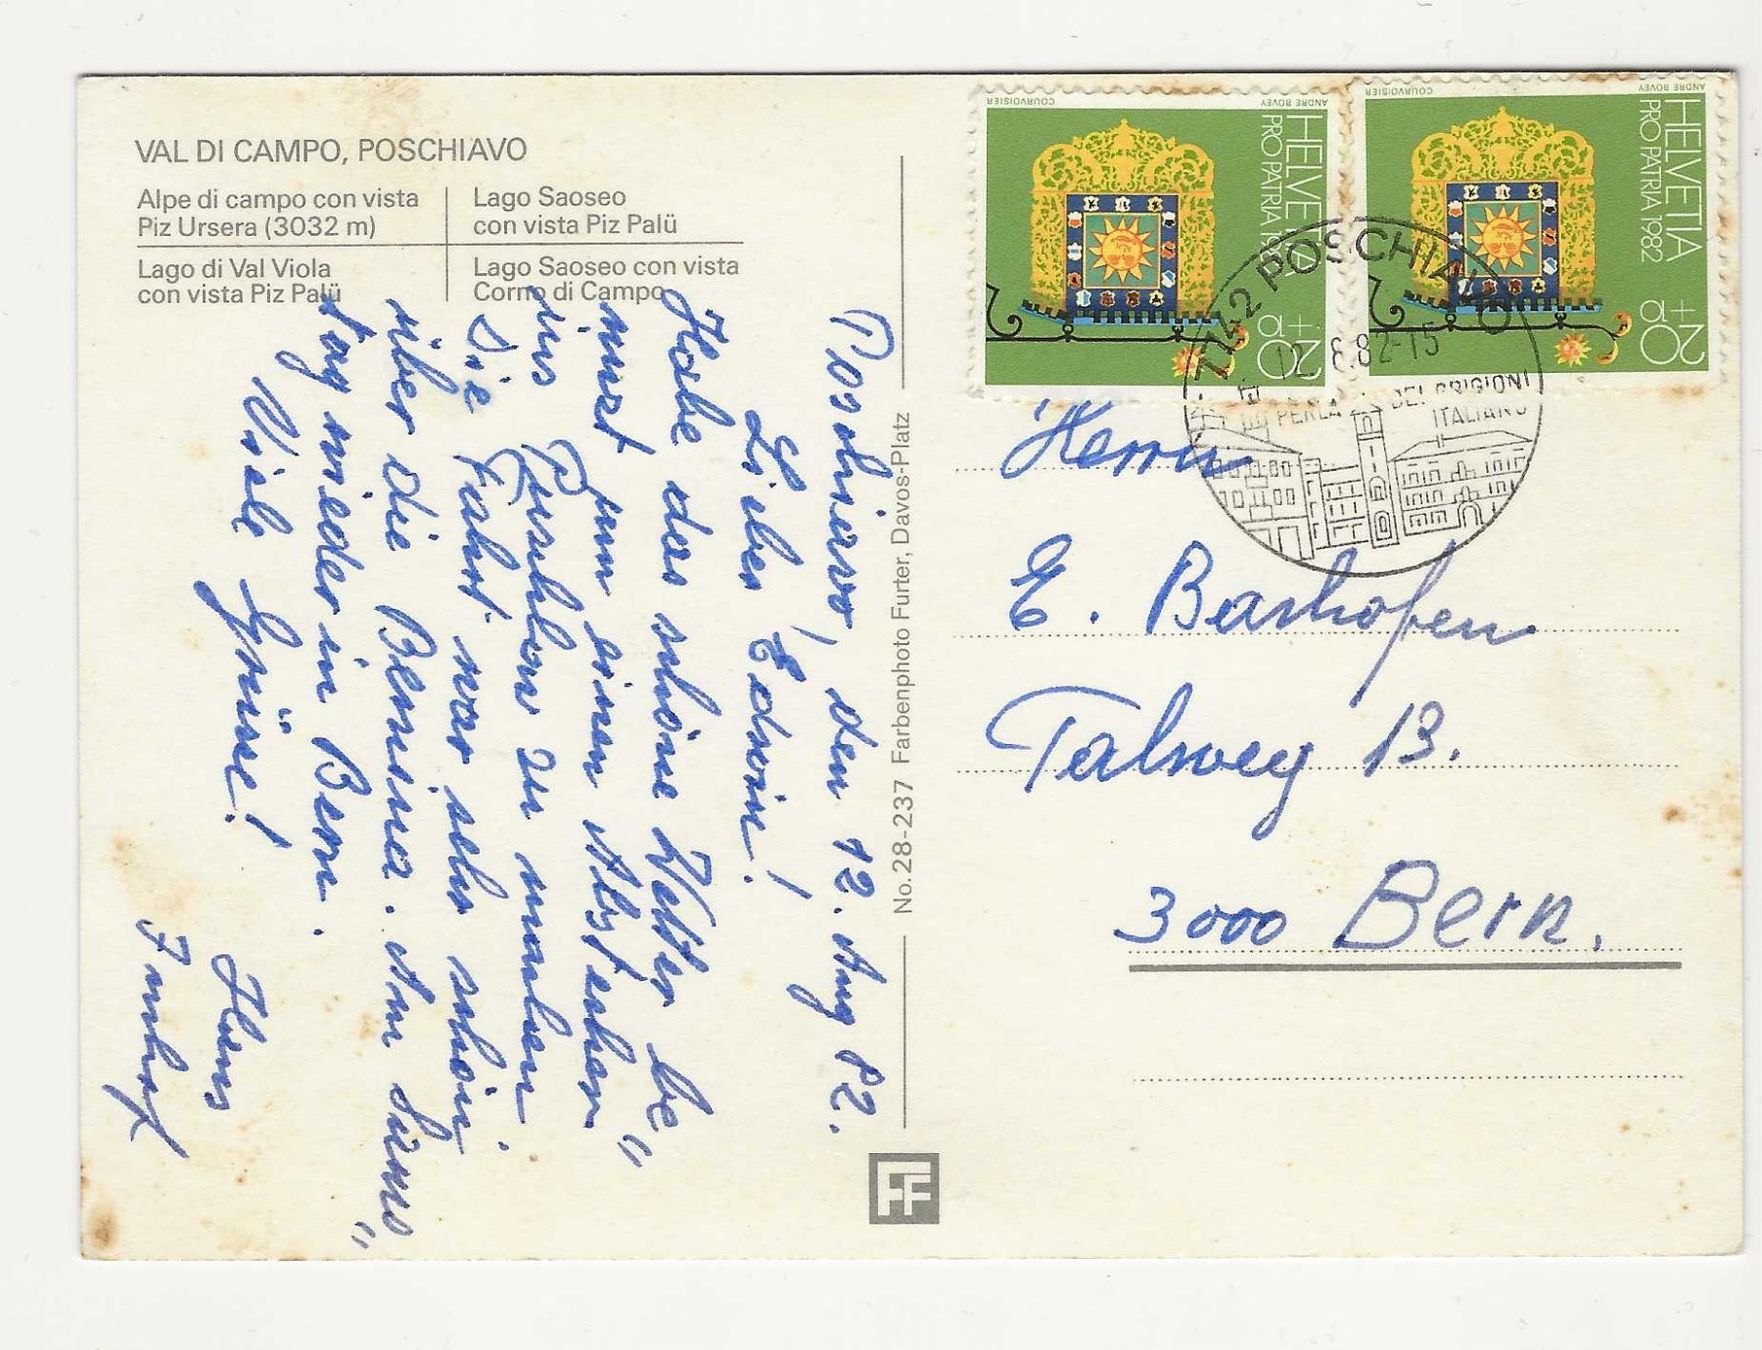 VAL DI CAMPO, POSCHIAVO
Alpe di campo con vista
Piz Ursera (3032 m)
Lago Saoseo
con vista Piz Palü
Lago di Val Viola
con vista Piz Palü
Lago Saoseo con vista
Corno di Campo
Poschiavo, den 12. Aug 82.
Lieber Edwin!
Habe das schöne Wetter be„
nutzt um einen Abstecher
ins Puschlav zu machen.
Die Fahrt war sehr schön
über die Bernina. Am Sams„
tag wieder in Bern.
Viele Grüsse!
Hans
Imhof
No. 28-237 Farbenphoto Furter, Davos-Platz
FF
HELVETIA
PRO PATRIA 1982
20
COURVOISIER
ANDRE BOVEY
HELVETIA
PRO PATRIA 1982
20+
COURVOISIER
ANDRE BOVEY
7742 POSCHIAVO
12.8.82-15
PERLA DEI GRIGIONI
ITALIANO
Herrn
E. Bashofen
Talweg 13.
3000 Bern.